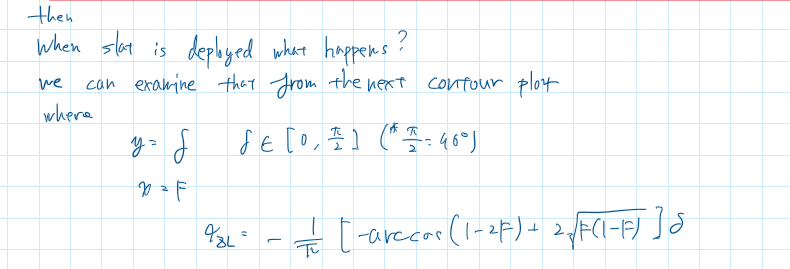 then
When slat is deployed what happens?
we can examine that from the next contour plot
where
y = δ   δ ∈ [0, π/2] (* π/2 = 90°)
x = F
α_ZL = - 1/π [-arccos(1-2F) + 2√(F(1-F))] δ